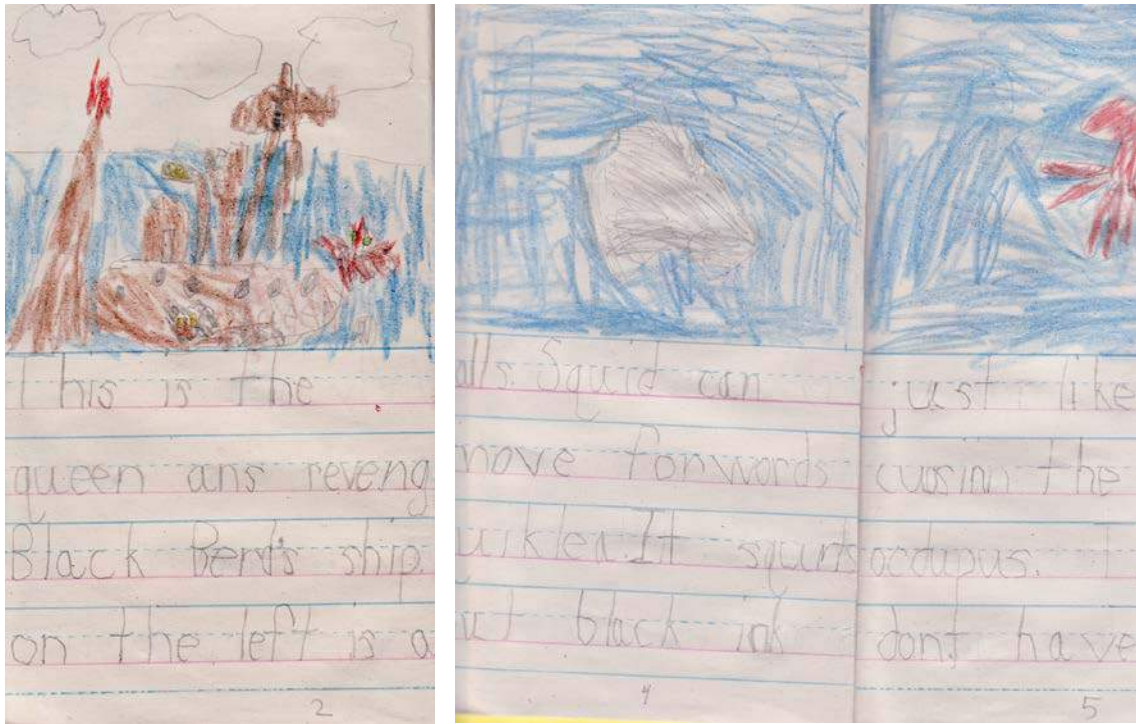 This is the
queen ans reveng
Black Berd's ship.
on the left is a
2
alls. Squid can
move forwords
uiklea. It squirts
ut black ink
4
just like
cuosinn the
ocdupus. I
dont have
5